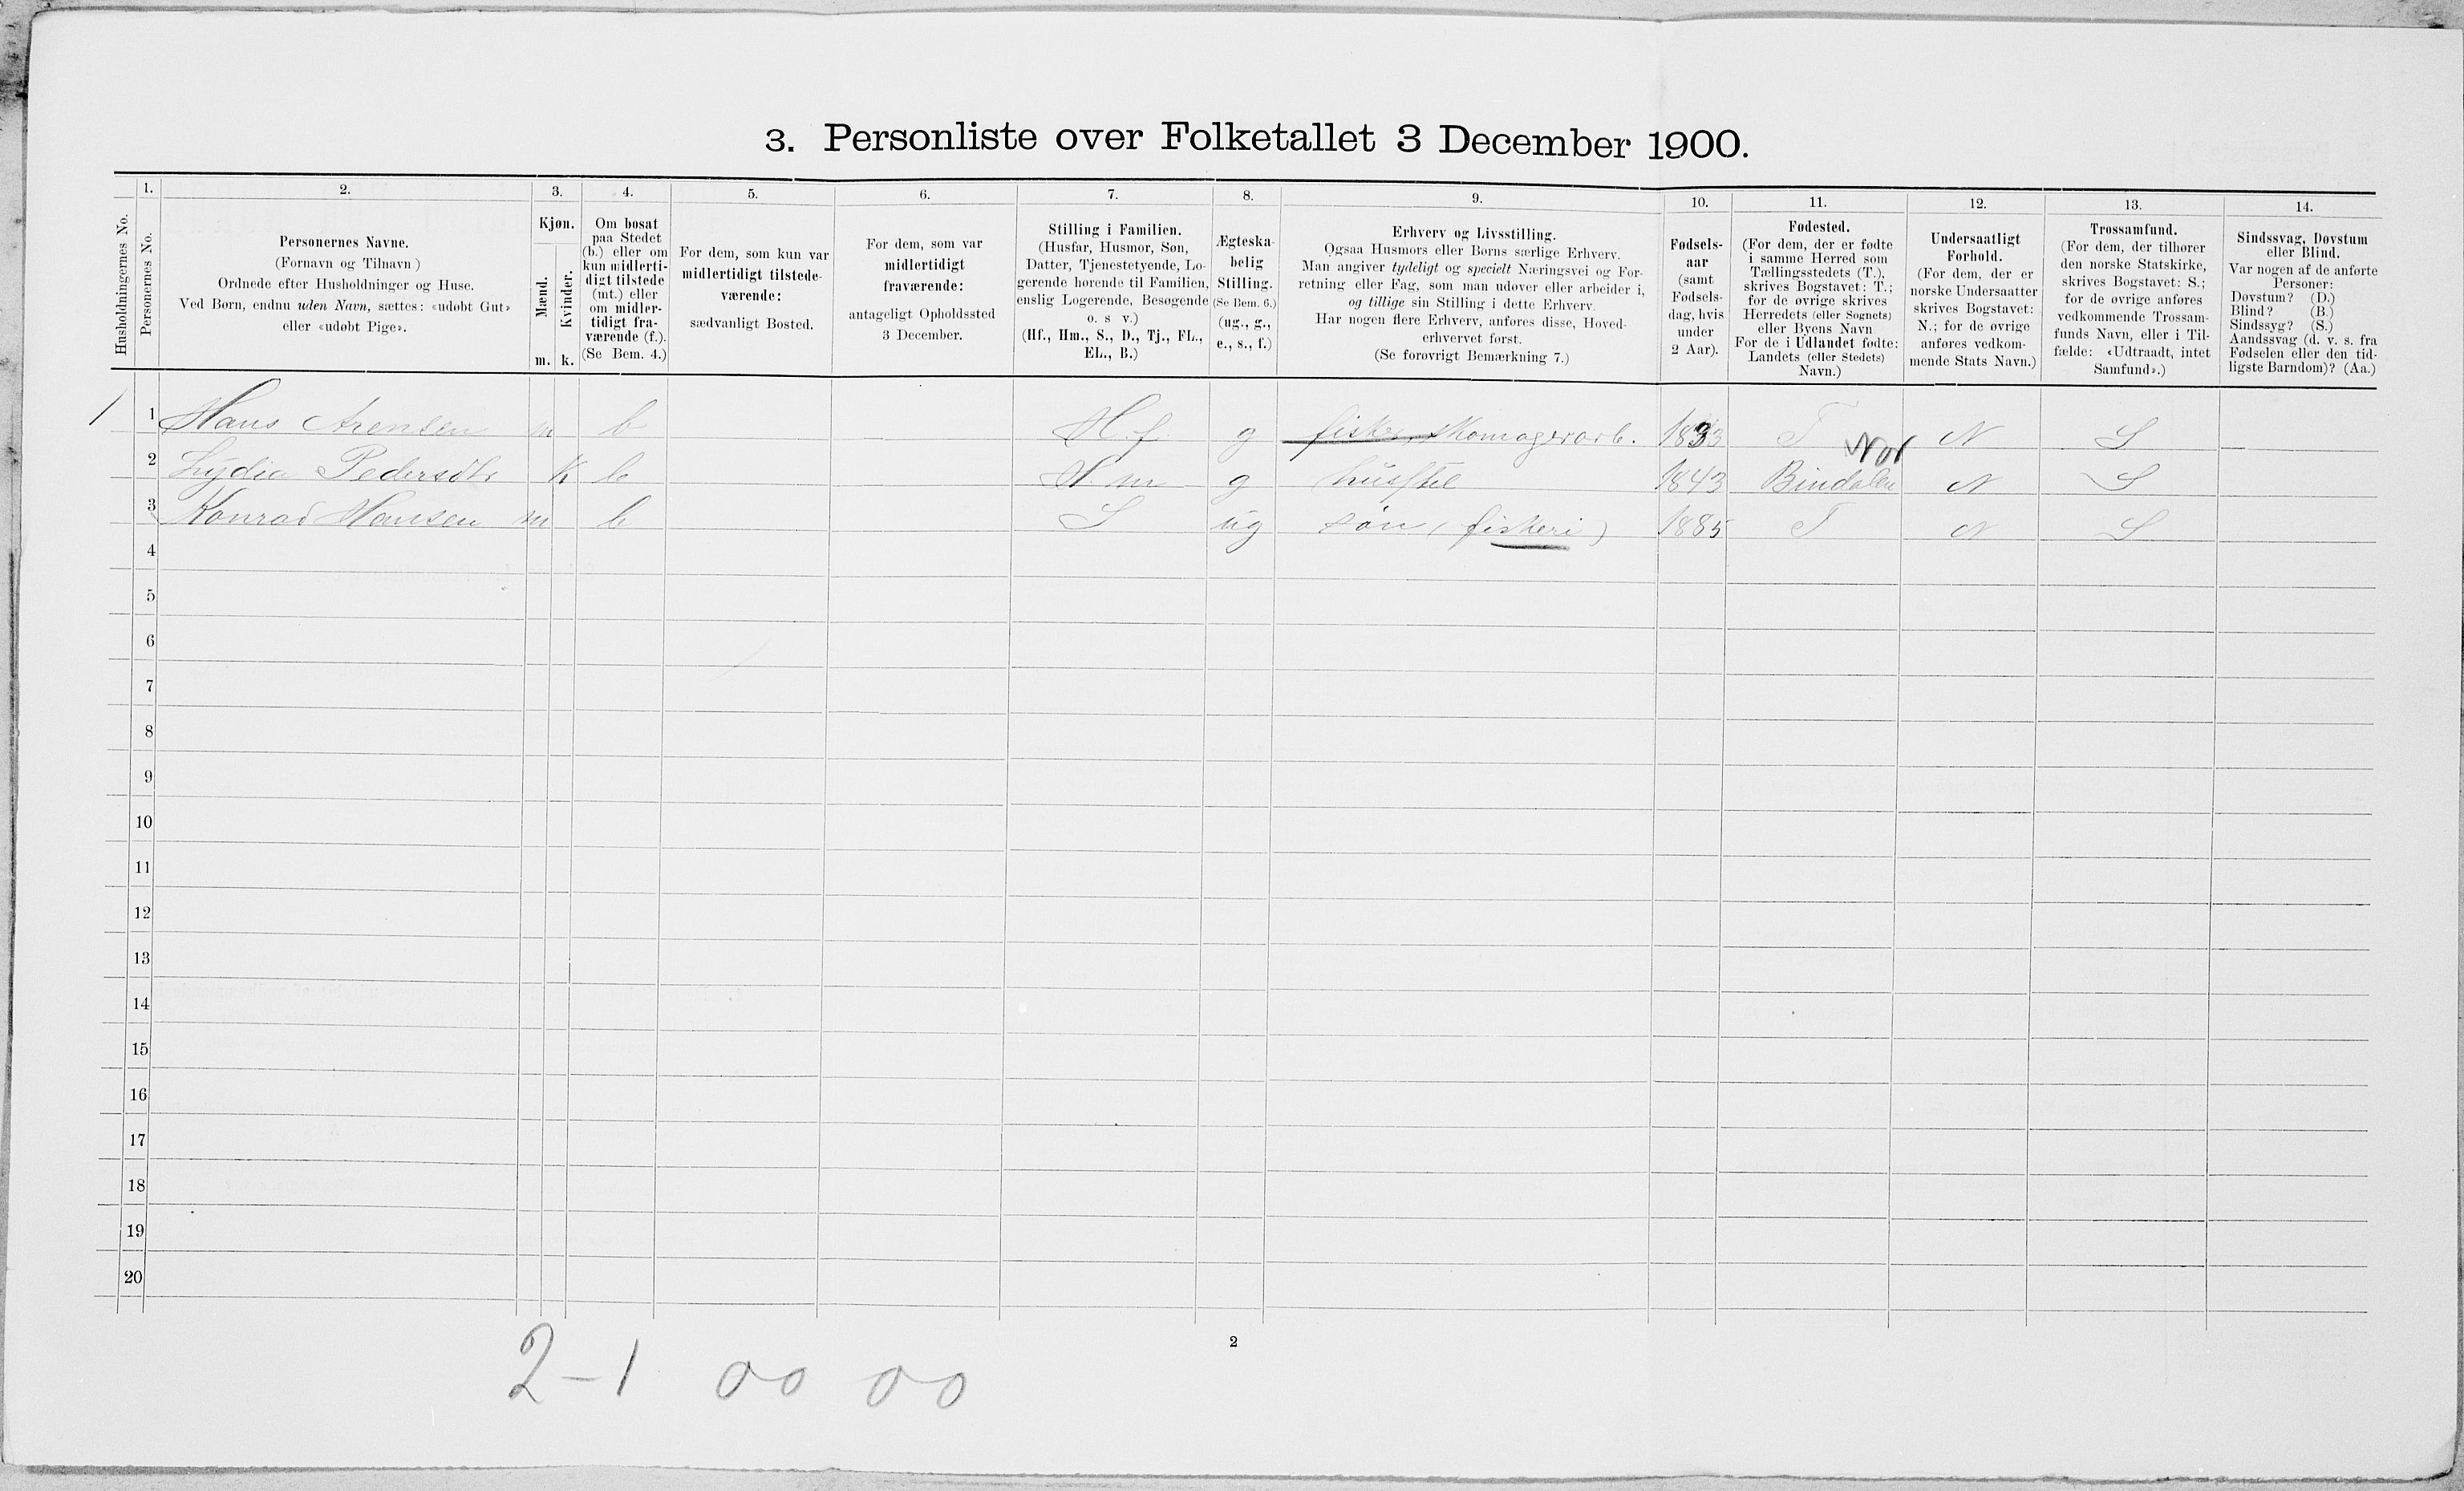 3. Personliste over Folketallet 3 December 1900.
Husholdningernes No.
1.
Personernes No.
2.
Personernes Navne.
(Fornavn og Tilnavn)
Ordnede efter Husholdninger og Huse.
Ved Børn, endnu uden Navn, sættes: «udøbt Gut»
eller «udøbt Pige».
3.
Kjøn.
Mænd.
Kvinder.
m. k.
4.
Om bosat
paa Stedet
(b.) eller om
kun midlerti-
digt tilstede
(mt.) eller
om midler-
tidigt fra-
værende (f.).
(Se Bem. 4.)
5.
For dem, som kun var
midlertidigt tilstede-
værende:
sædvanligt Bosted.
6.
For dem, som var
midlertidigt
fraværende:
antageligt Opholdssted
3 December.
7.
Stilling i Familien.
(Husfar, Husmor, Søn,
Datter, Tjenestetyende, Lo-
gerende hørende til Familien,
enslig Logerende, Besøgende
o. s v.)
(Hf., Hm., S., D., Tj., FL.,
EL., B.)
8.
Ægteska-
belig
Stilling.
(Se Bem. 6.)
(ug., g.,
e., s., f.)
9.
Erhverv og Livsstilling.
Ogsaa Husmors eller Børns særlige Erhverv.
Man angiver tydeligt og specielt Næringsvei og For-
retning eller Fag, som man udøver eller arbeider i,
og tillige sin Stilling i dette Erhverv.
Har nogen flere Erhverv, anføres disse, Hoved-
erhvervet først.
(Se forøvrigt Bemærkning 7.)
10.
Fødsels-
aar
(samt
Fødsels-
dag, hvis
under
2 Aar).
11.
Fødested.
(For dem, der er fødte
i samme Herred som
Tællingsstedets (T.),
skrives Bogstavet: T.;
for de øvrige skrives
Herredets (eller Sognets)
eller Byens Navn
For de i Udlandet fødte:
Landets (eller Stedets)
Navn.)
12.
Undersaatligt
Forhold.
(For dem, der er
norske Undersaatter
skrives Bogstavet:
N.; for de øvrige
anføres vedkom-
mende Stats Navn.)
13.
Trossamfund.
(For dem, der tilhører
den norske Statskirke,
skrives Bogstavet: S.;
for de øvrige anføres
vedkommende Trossam-
funds Navn, eller i Til-
fælde: «Udtraadt, intet
Samfund».)
14.
Sindssvag, Døvstum
eller Blind.
Var nogen af de anførte
Personer:
Døvstum? (D.)
Blind? (B.)
Sindssyg? (S.)
Aandssvag (d. v. s. fra
Fødselen eller den tid-
ligste Barndom)? (Aa.)
1 1 Hans Arentsen m b Hf. g fisker, skomagerarb. 1833 T N S
Nor
2 Lydia Pedersdtr k b Hm g husstel 1843 Bindalen N S
3 Konrad Hansen m b S ug søn (fiskeri) 1885 T N S
4
5
6
7
8
9
10
11
12
13
14
15
16
17
18
19
20
2
2-1 00 00